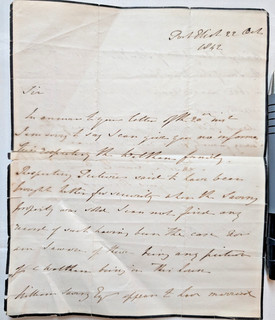 Port Eliot 22 Oct
1842
Sir
In answer to your letter of the 20th inst
I am sorry to say I can give you no informa
tion respecting the family
Respecting Pictures said to have been
brought hither for security when the
property was sold I can not find any
record of such having been the case nor
am I aware of there being any picture
of a being in this house
William Esqr appears to have married